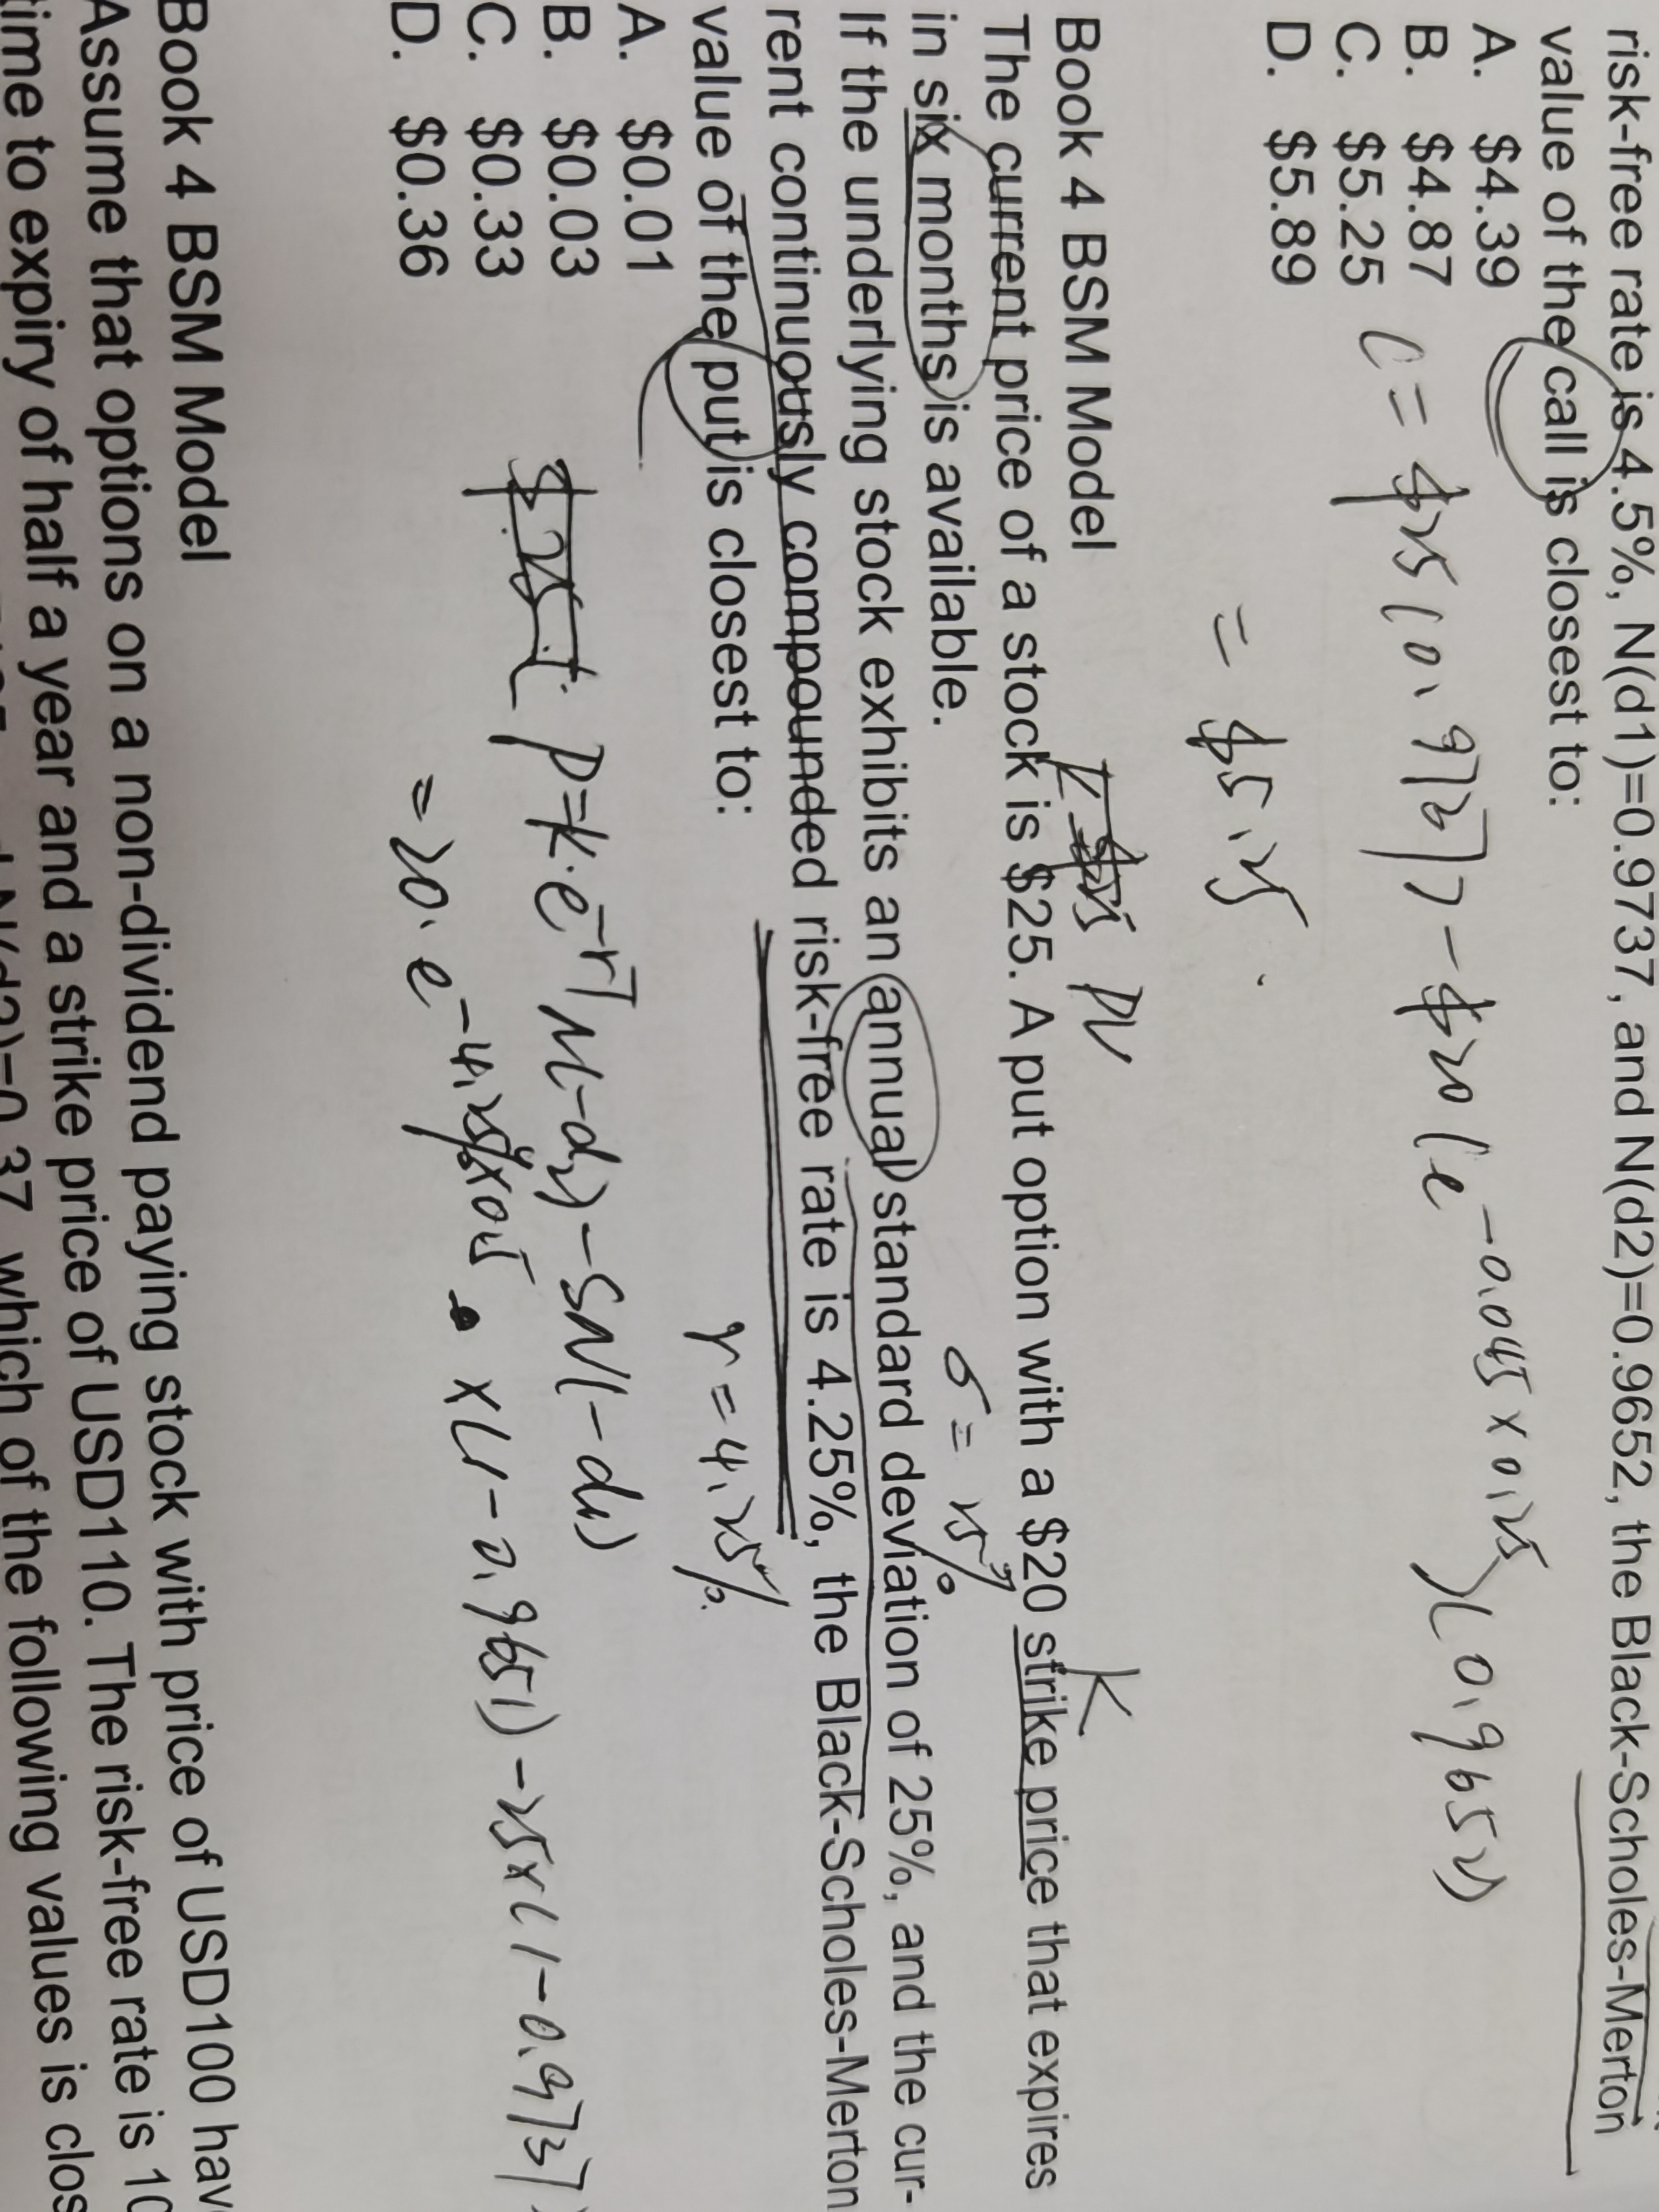 risk-free rate is 4.5%, N(d1)=0.9737, and N(d2)=0.9652, the Black-Scholes-Merton
value of the call is closest to:
A. $4.39
B. $4.87
C. $5.25
D. $5.89
C = $25 (0.9737) - $20 (e^-0.045×0.25)(0.9652)
= $5.25.
Book 4 BSM Model
PV
K
The current price of a stock is $25. A put option with a $20 strike price that expires
in six months is available.
σ = 25%
If the underlying stock exhibits an annual standard deviation of 25%, and the cur-
rent continuously compounded risk-free rate is 4.25%, the Black-Scholes-Merton
value of the put is closest to:
r = 4.25%.
A. $0.01
B. $0.03
C. $0.33
D. $0.36
P=K·e^-rT N(-d2)-SN(-d1)
=20·e^-4.25%×0.5 ×(1-0.9651)-25×(1-0.9737)
Book 4 BSM Model
Assume that options on a non-dividend paying stock with price of USD100 have
time to expiry of half a year and a strike price of USD110. The risk-free rate is 10
N(d2)=0.37, which of the following values is clos